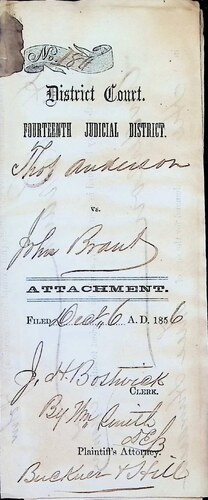 No. 186
District Court.
FOURTEENTH JUDICIAL DISTRICT.
Thos Anderson
vs.
John Brant
ATTACHMENT.
FILED Dec. 6 A.D. 1856
J. H. Bostwick
CLERK.
By Wm Smith
Plaintiff's Attorney.
Buckner & Hill